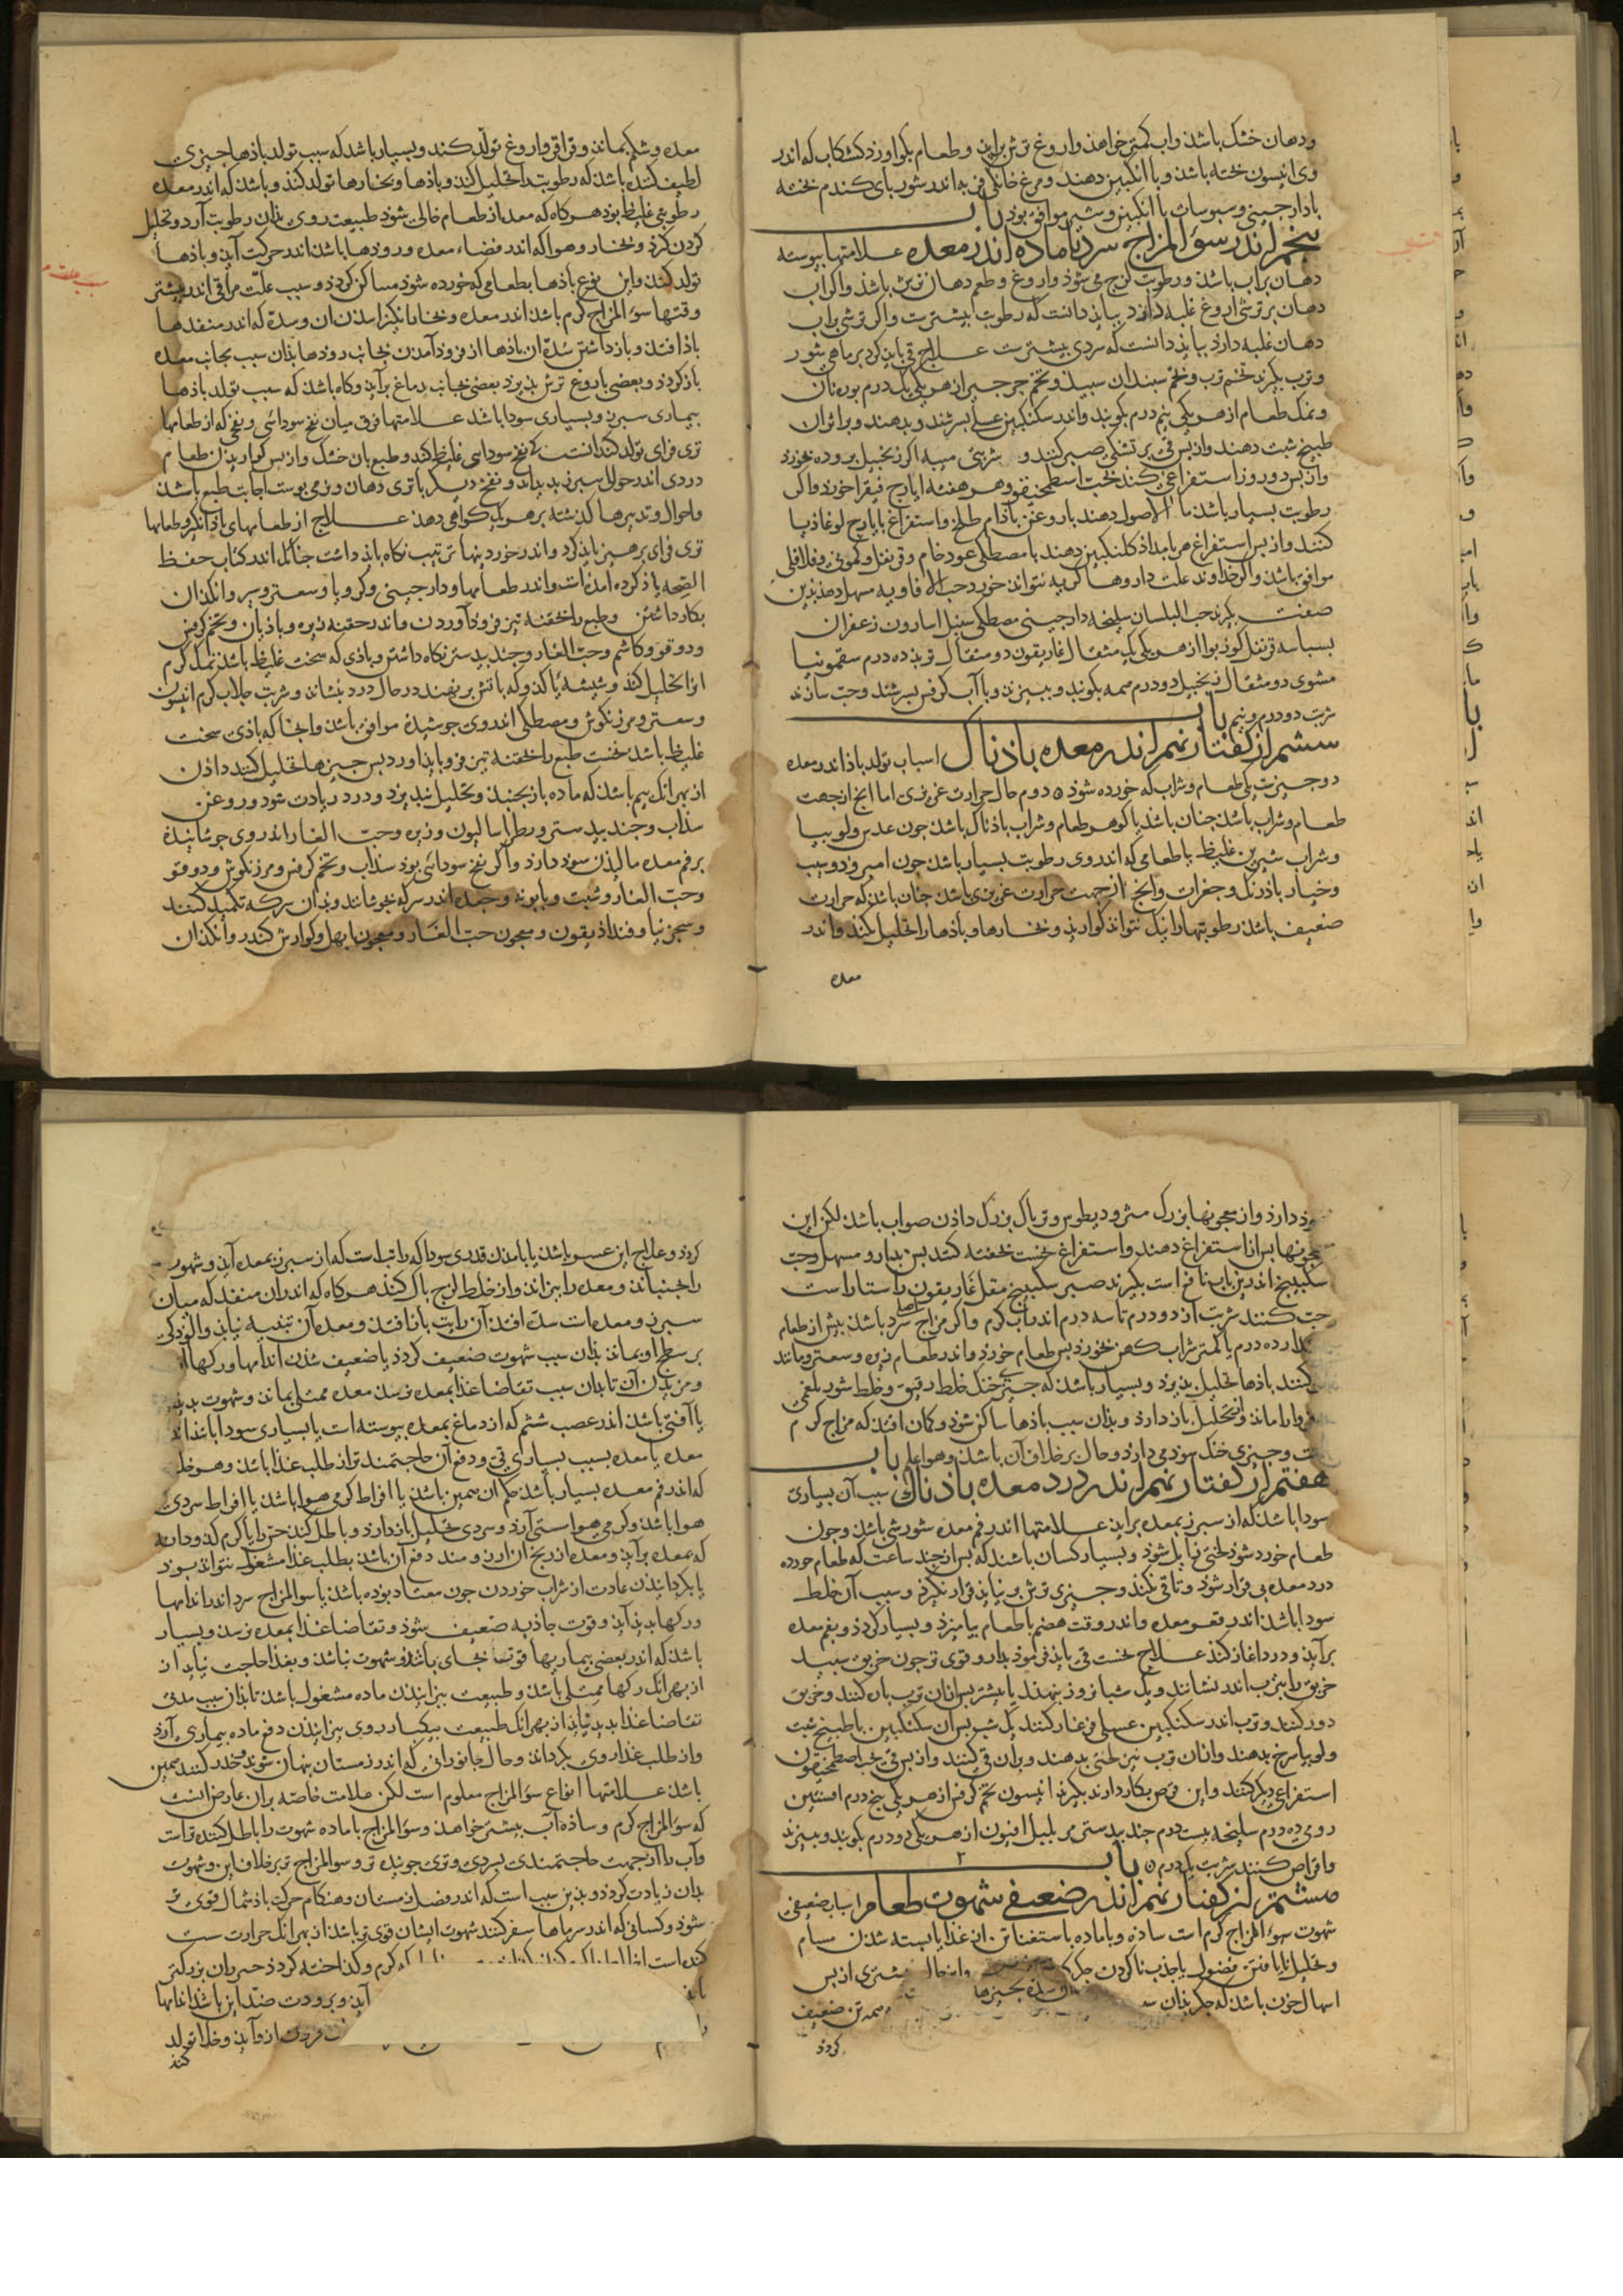 ودهان خشک باشذ واب کمتر خواهذ واروغ ترش براید وطعام بکوارد کشکاب که اندر
وی انیسون پخته باشذ وبا انکبین دهند ومرغ خانکی فربه اندر شوربای کندم پخته
بادارجینی وسبوساب با انکبین وشیر موافق بوذ باب
پنجم اندر سوء المزاج سرد باماده اندر معده علامتها پیوسته
دهان پراب باشذ ورطوبت لزج می شوذ واروغ وطعم دهان ترش باشذ واکر اب
دهان بر ترشی اروغ غلبه دارد ببایذ دانست که رطوبت بیشترست واکر ترشی براب
دهان غلبه دارذ ببایذ دانست که سردی بیشترست علاج قی بایذ کرد بر ماهی شور
وترب بکیرند تخم ترب وتخم سبندان سبید وتخم جرجیر از هر یکی یک درم بوره نان
ونمک طعام از هر یکی نیم درم بکوبند واندر سکنکبین عسلی بسرشند وبدهند وبر اثر ان
طبیخ شبت دهند واز بس قی بر تشنکی صبر کنند و شربتی میبه اکر زنجبیل پرورده بخورد
واز بس دو روز استفراغی کنند بحب اسطمخیقون وهر هفته ایارج فیقرا خورد واکر
رطوبت بسیار باشذ ما الاصول دهند با روغن باذام طلخ واستفراغ بایارج لوغاذیا
کنند واز بس استفراغ هر بامداذ کلنکبین دهند با مصطکی وعود خام وقرنفل وکمونی وفلافلی
موافق باشذ واکر خداوند علت داروها کریه نتواند خورد حب الافاویه مسهل دهند بذین
صفت بکیرند حب البلسان سلیخه دارجینی مصطکی سنبل اسارون زعفران
بسباسه قرنفل کوزبوا از هر یکی یک مثقال غاریقون دو مثقال تربذ ده درم سقمونیا
مشوی دو مثقال زنجبیل دو درم همه بکوبند وببیزند وبا آب کرفس بسرشند وحب سازند
شربت دو درم ونیم باب
ششم از کفتار نهم اندر معده باذناک اسباب تولد باذ اندر معده
دو جیزست یکی طعام وشراب که خورده شوذ ٥ دوم حال حرارت غریزی اما انج از جهت
طعام وشراب باشذ جنان باشذ یا کوهر طعام وشراب باذناک باشذ جون عدس ولوبیا
وشراب شیرین غلیظ یا طعامی که اندروی رطوبت بسیار باشذ جون امرود وسیب
وخیار باذرنک وجغرات وانج از جهت حرارت غریزی باشذ جنان باشذ که حرارت
ضعیف باشذ رطوبتها را نیک نتواند کوارید وبخارها وباذها را تحلیل نکند واندر
معده
معده وشکم بماند وقراقر واروغ تولد کند وبسیار باشد که سبب تولد باذها جیزی
لطیف کننده باشذ که رطوبت را تحلیل کند وباذها وبخارها تولد کند وباشذ که اندر معده
رطوبتی غلیظ بوذ هرکاه که معده از طعام خالی شوذ طبیعت روی بذان رطوبت آرد وتحلیل
کردن کیرذ وبخار وهوا که اندر فضاء معده ورودها باشذ اندر حرکت آیذ وباذها
تولد کند واین نوع باذها بطعامی که خورده شوذ ساکن کردذ وسبب علت مراقی اندر بیشتر
وقتها سوء المزاج کرم باشذ اندر معده وبخارها انکیزانیدن ان وسده که اندر منفذها
باذ افتذ وباز داشتن سده ان باذها از فروذ آمدن بجانب رودها بذان سبب بجانب معده
بازکردذ وبعضی باروغ ترش بذیرذ بعضی بجانب دماغ برآیذ وکاه باشذ که سبب تولد باذها
بیماری سبرز وبسیاری سودا باشذ علامتها فرق میان نفخ سودائی ونفخی که از طعامها
تری فزای تولد کند انست که نفخ سودائی غلیظ کند وطبع بان خشک واز بس کواریذن طعام
دردی اندر حوالی سبرز بدیذ اید ونفخ دیکر با تری دهان ونرمی بوست اجابت طبع باشذ
واحوال وتدبیرها کذشته بر هر یک کواهی دهذ علاج از طعامهای باذانکیز وطعامها
تری فزای برهیز بایذ کرد واندر خوردنیها ترتیب نکاه بایذ داشت جنانک اندر کتاب حفظ
الصحه یاذ کرده امده است واندر طعامها دارجینی وکرویا وسعتر وسیر وانکذان
بکار داشتن وطبع را بحقنه تیز فروذ آوردن واندر حقنه زیره وباذیان وتخم کرفس
ودوقو وکاشم وحب الغار وجند بیدستر نکاه داشتن وباذی که سخت غلیظ باشذ نمک کرم
انرا تحلیل کند وشیشه یا کدو که باتش بر نهند در حال درد بنشاند وشربت جلاب کرم انیسون
وسعتر ومرزنکوش ومصطکی اندروی جوشیده موافق باشذ وانجا که باذی سخت
غلیظ باشذ نخست طبع را بحقنه تیز فرو باید اورد بس جیزها تحلیل کننده داذن
از بهر انک بیم باشذ که ماده باز بجنبذ وتحلیل نبذیرذ ودرد زیادت شود وروغن
سذاب وجند بیدستر وفطراسالیون وزیره وحب الغار اندروی جوشانیده
بر فم معده مالیدن سود دارد واکر نفخ سودائی بوذ سذاب وتخم کرفس ومرزنکوش ودوقو
وحب الغار وشبت وبابونه وجعده اندر سرکه بجوشانند وبذان سرکه تکمید کنند
وسجزنیا وفنداذیقون ومعجون حب الغار ومعجون ابهل وکوارش کندر وانکذان
سوذ دارذ واز معجونها بزرک مثرودیطوس وتریاک بزرک داذن صواب باشذ لکن این
معجونها بس از استفراغ دهند واستفراغ نخست بحقنه کنند بس بدارو مسهل وحب
سکبینج اندرین باب نافع است بکیرند صبر سکبینج مقل غاریقون راستاراست
حب کنند شربت از دو درم تا سه درم اندر آب کرم واکر مزاج سرد باشذ بیش از طعام
مقدار ده درم یا کمتر شراب کهن بخورذ بس طعام خورذ واندر طعام زیره وسعتر ومانند
کنند باذها تحلیل بذیرذ وبسیار باشذ که جیزی خنک خلط رقیق وخلط شور بلغمی
وبذان سبب باذها ساکن شوذ وکمان افتذ که مزاج کرم
است وجیزی خنک سوذ می دارذ وحال بر خلاف آن باشذ وهو اعلم باب
هفتم از کفتار نهم اندر درد معده باذناک سبب آن بسیاری
سودا باشذ که از سبرز بمعده براید علامتها اندر فم معده سوزشی باشذ وجون
طعام خورد شوذ لختی زایل شوذ وبسیار کسان باشند که بس از جند ساعت که طعام خورده
درد معده بی قرار شوذ وتا قی نکند وجیزی ترش بر نیاید قرار نکیرذ وسبب آن خلط
سودا باشذ اندر قعر معده واندر وقت هضم با طعام بیامیزذ وبسیار کردذ وبفم معده
برآیذ ودرد اغاز کند علاج نخست قی بایذ فرموذ بدارو قوی تر جون خربق سبید
خربق را بترب اندر نشانند ویک شبانروز بنهند یا بیشتر بس از ان ترب باره کنند وخربق
دور کنند وترب اندر سکنکبین عسلی فرغار کنند یک شب بس ان سکنکبین با طبیخ شبت
ولوبیا سرخ بدهند وازان ترب نیز لختی بدهند وبران قی کنند واز بس قی بحب اصطمخیقون
استفراغی دیکر کنند واین قرص بکار دارند بکیرند انیسون تخم کرفس از هر یکی بنج درم افسنتین
رومی ده درم سلیخه بیست درم جند بیدستر مر بلبل افیون از هر یکی دو درم بکوبند وببیزند
واقراص کنند شربت یک درم ٥ باب
هشتم از کفتار نهم اندر ضعیفی شهوت طعام اسباب ضعیفی
شهوت سوء المزاج کرم است ساده وباماده یا ستغنا تن از غذا یا بسته شدن مسام
وتحلیل نایافتن فضول یا جذب ناکردن جکر بیشتری از بس
اسهال خون باشذ که جکر بذان همه تن ضعیف
کردذ
کردذ وعلاج این عسر باشذ یا بامدن قدری سودا که راتب است که از سبرز بمعده آید وشهوت
را بجنباند ومعده را بیزاند واز خلط لزج باک کند هرکاه که اندران منفذ که میان
سبرز ومعده است سده افتذ آن راتب باز افتذ ومعده آن تنبیه نیابذ والودکی
بر سطح او بماند بذان سبب شهوت ضعیف کردذ یا ضعیف شدن اندامها ورکها از
ومزیدن آن تا بدان سبب تقاضا غذا بمعده نرسد معده ممتلی بماند وشهوت بدید
یا آفتی باشذ اندر عصب ششم که از دماغ بمعده بیوسته است یا بسیاری سودا باشذ اندر
معده یا معده بسبب بسیاری قی ودفع آن حاجتمندتر از طلب غذا باشذ وهو خلط
که اندر فم معده بسیار باشذ حکم ان همین باشذ یا افراط کرمی هوا باشذ یا افراط سردی
هوا باشذ وکرمی هوا سستی آرذ وسردی تحلیل باز دارذ وباطل کند
که بمعده برآیذ ومعده از رنج آن ارزومند دفع آن باشذ بطلب غذا مشغول نتواند بوذ
یا بکردانیذن عادت از شراب خوردن جون معتاد بوده باشذ یا سوء المزاج سرد اندر اندامها
ورکها بدید آیذ وقوت جاذبه ضعیف شوذ وتقاضا غذا بمعده نرسد وبسیار
باشذ که اندر بعضی بیماریها قوتها بجای باشذ وشهوت نباشذ وبغذا حاجت نیاید از
از بهر انک رکها ممتلی باشذ وطبیعت ببزانیدن ماده مشغول باشذ تا بذان سبب مدتی
تقاضا غذا بدید نیاید از بهر انک طبیعت بیکبار روی ببزانیدن دفع ماده بیماری آرذ
واز طلب غذا روی بکرداند وحال جانورانی که اندر زمستان بنهان شوند وخدر کنند همین
باشذ علامتها انواع سوء المزاج معلوم است لکن علامت خاصه بران عارض انست
که سوء المزاج کرم وساذه آب بیشتر خواهذ وسوء المزاج باماده شهوت را باطل کننده تر است
وآب را از جهت حاجتمندی بسردی وتری جوینده تر وسوء المزاج تر بر خلاف این وشهوت
بدان زیادت کردذ وبذین سبب است که اندر فصل زمستان وهنکام حرکت باذ شمال قوی تر
شوذ وکسانی که اندر سرماها سفر کنند شهوت ایشان قوی تر باشذ از بهر انک حرارت سست
کننده است کرم وکذاخته کردذ جیزها بزرکتر
آید وبرودت ضد این باشذ انها
فرود از وآید وخلا تولد
کند